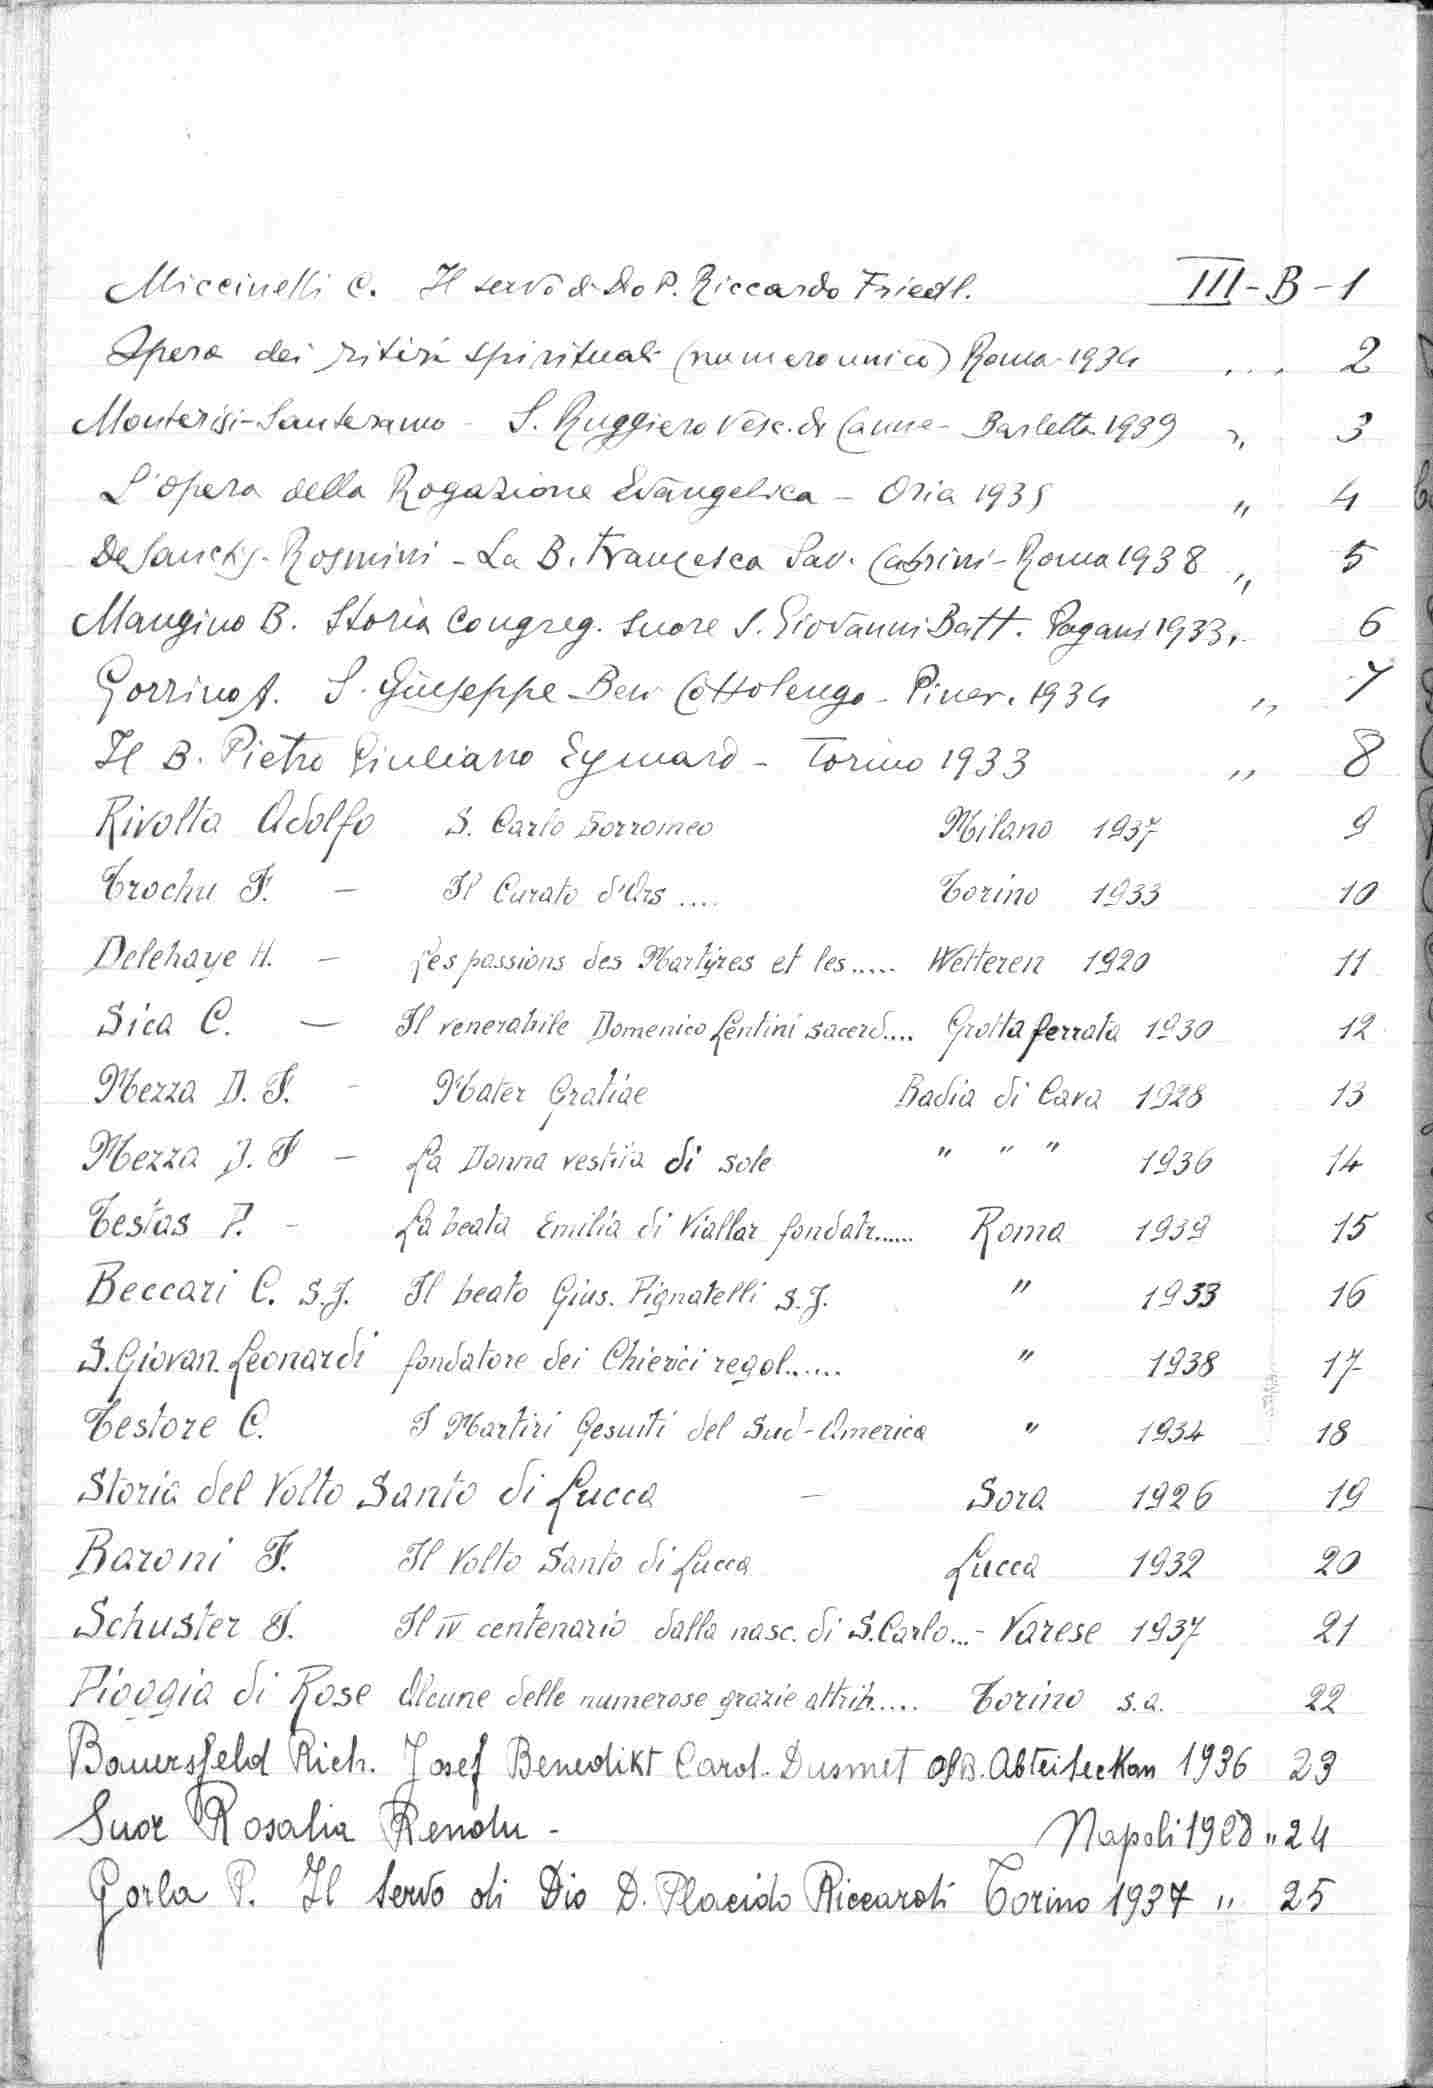 Miccinelli C. Il servo di Dio P. Riccardo Friedl. III-B-1
Opera dei ritiri spirituali (numero unico) Roma 1934 ... 2
Monterisi-Santeramo - S. Ruggiero Vesc. di Canne - Barletta 1939 " 3
L'opera della Rogazione Evangelica - Oria 1935 " 4
De Sanctis-Rosmini - La B. Francesca Sav. Cabrini - Roma 1938 " 5
Mangino B. Storia Congreg. Suore S. Giovanni Batt. Pagani 1933. 6
Gorrino A. S. Giuseppe Ben Cottolengo - Piner. 1934 " 7
Il B. Pietro Giuliano Eymard - Torino 1933 " 8
Rivolta Adolfo S. Carlo Borromeo Milano 1937 9
Trochu F. - Il Curato d'Ars .... Torino 1933 10
Delehaye H. - Les passions des Martyres et les ..... Wetteren 1920 11
Sica C. - Il venerabile Domenico Lentini sacerd.... Grotta ferrata 1930 12
Mezza D. F. - Mater Gratiae Badia di Cava 1928 13
Mezza D. F - La Donna vestita di sole " " " 1936 14
Testas P. - La beata Emilia di Viallar fondatr...... Roma 1939 15
Beccari C. S.J. Il beato Gius. Pignatelli S.J. " 1933 16
S. Giovan. Leonardi fondatore dei Chierici regol...... " 1938 17
Testore C. I Martiri Gesuiti del Sud-America " 1934 18
Storia del Volto Santo di Lucca - Sora 1926 19
Baroni F. Il Volto Santo di Lucca Lucca 1932 20
Schuster I. Il IV centenario dalla nasc. di S. Carlo...- Varese 1937 21
Pioggia di Rose Alcune delle numerose grazie attrib..... Torino s.a. 22
Bauersfeld Rich. Josef Benedikt Card. Dusmet OSB. Abtei Seckau 1936 23
Suor Rosalia Rendu - Napoli 1928 " 24
Gorla P. Il servo di Dio D. Placido Riccardi Torino 1937 " 25